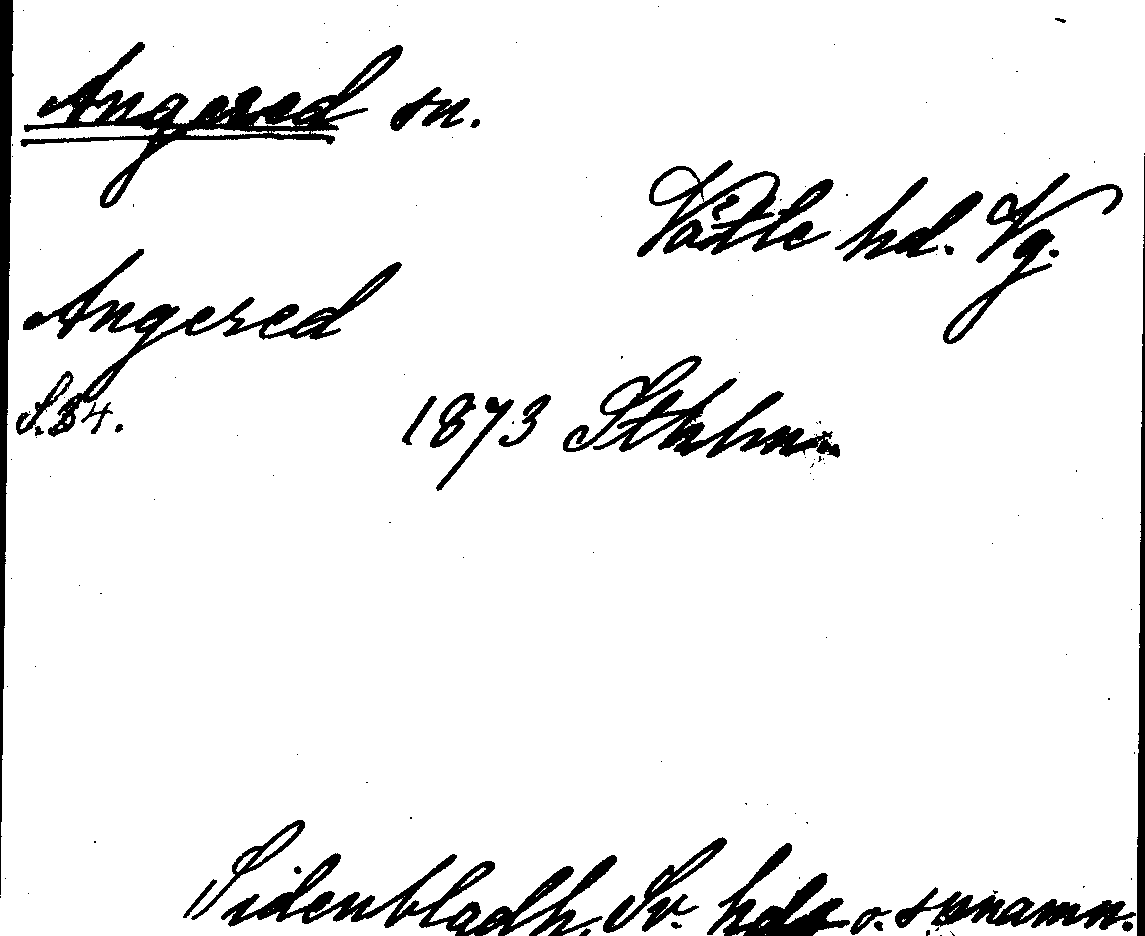 Angered sn.
Vättle hd. Vg.
Angered
S. 34.
1873 Sthlm
Sidenbladh, Sv. hds o. snnamn.